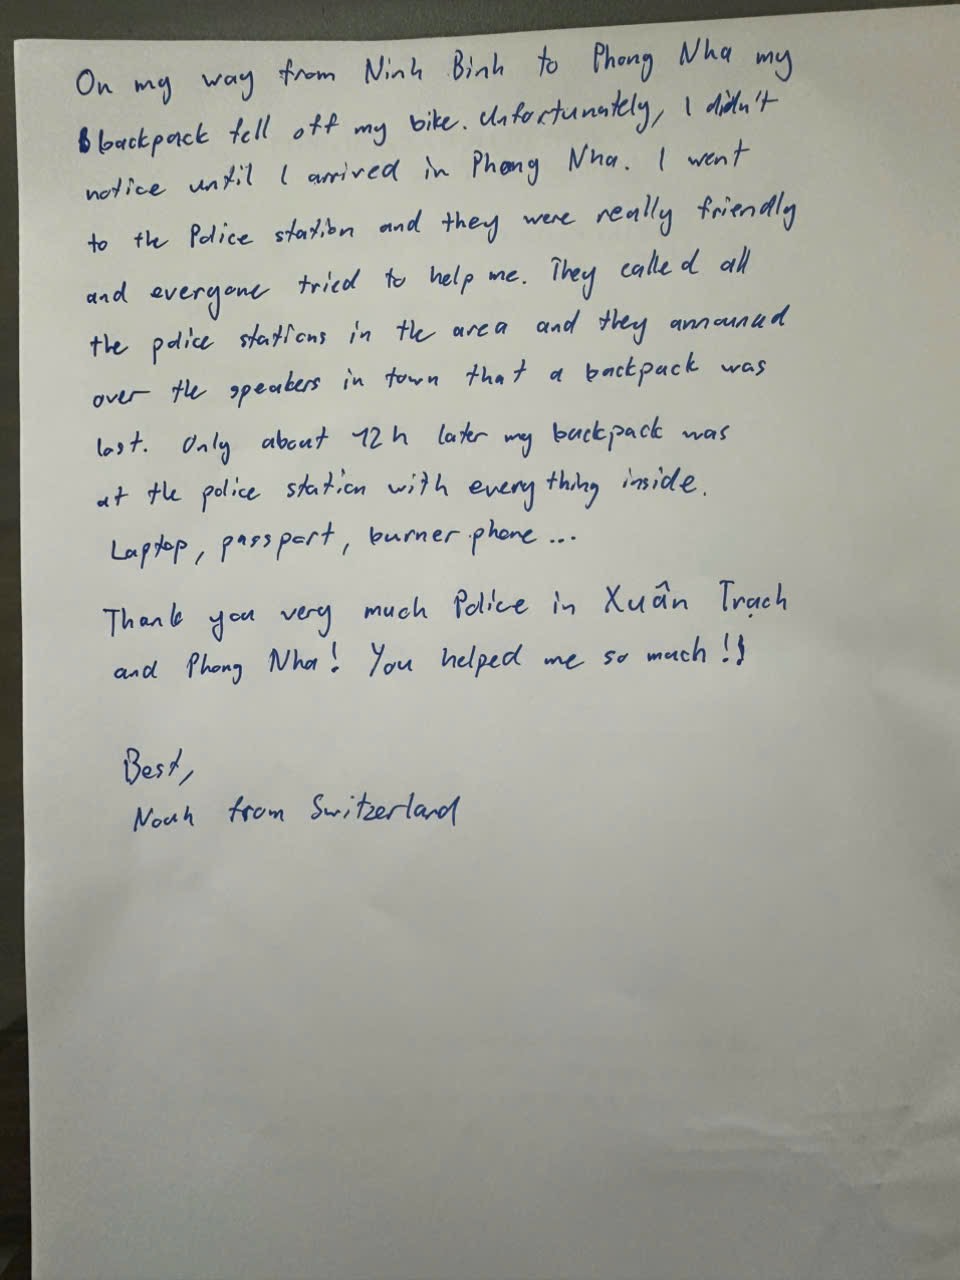 On my way from Ninh Binh to Phong Nha my
backpack fell off my bike. Unfortunately, I didn't
notice until I arrived in Phong Nha. I went
to the Police station and they were really friendly
and everyone tried to help me. They called all
the police stations in the area and they announced
over the speakers in town that a backpack was
lost. Only about 12h later my backpack was
at the police station with everything inside.
Laptop, passport, burner phone...
Thank you very much Police in Xuân Trạch
and Phong Nha! You helped me so much!!
Best,
Noah from Switzerland